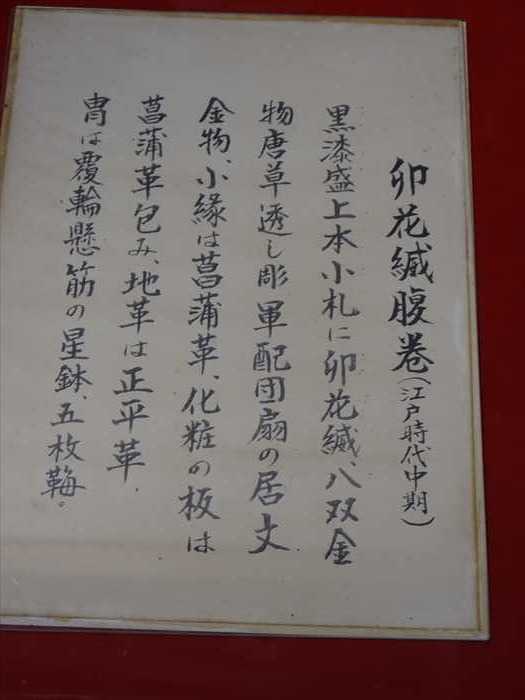 卯花縅腹巻(江戸時代中期)
黒漆盛上本小札に卯花縅、八双金
物唐草透し彫軍配団扇の居文
金物、小縁は菖蒲革、化粧の板は
菖蒲革包み、地革は正平革.
冑は覆輪懸筋の星鉢、五枚𩊱。